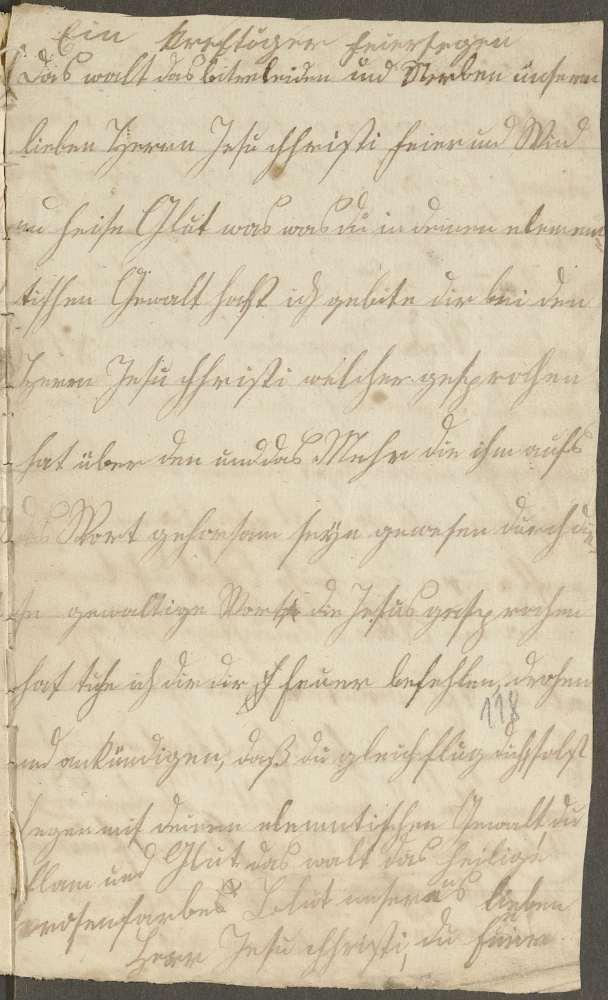 Ein kreftiger feiersegen
Das walt das bitre leiden und Sterben unsern
lieben Herrn Jesu christi feier und Wind
und heise Glut was was du in deinen elemen=
tischen Gewalt hast ich gebite dir bei den
Herrn Jesu christi welcher gesprochen
hat über den und das Mehr die ihm aufs
das Wort gehorsam seÿn gewesen durch die=
se gewaltige Worte die Jesus gesprochen
hat tuhe ich dir dir feuer befehlen, drohen
118
und ankündigen, daß du gleich flug dich solst
legen mit deinen elementischen Gewalt, du
flam und Glut das walt das heilige
rosenfarbes Blut unsers lieben
Herr Jesu christi, du feuer